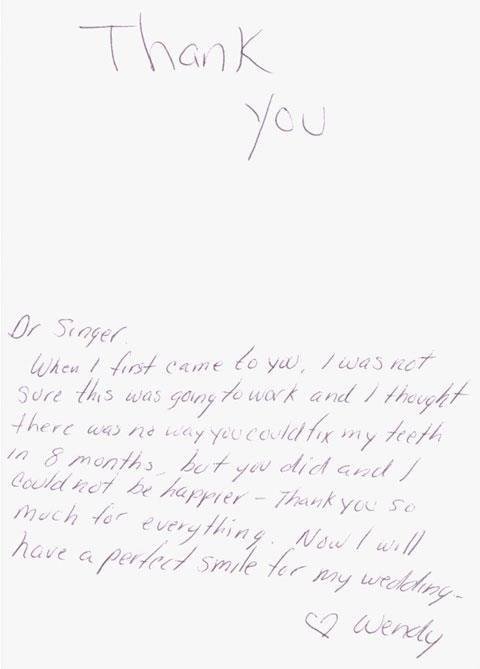 Thank
You
Dr Singer.
When I first came to you, I was not
sure this was going to work and I thought
there was no way you could fix my teeth
in 8 months, but you did and I
could not be happier – Thank you so
much for everything. Now I will
have a perfect smile for my wedding –
♡ Wendy